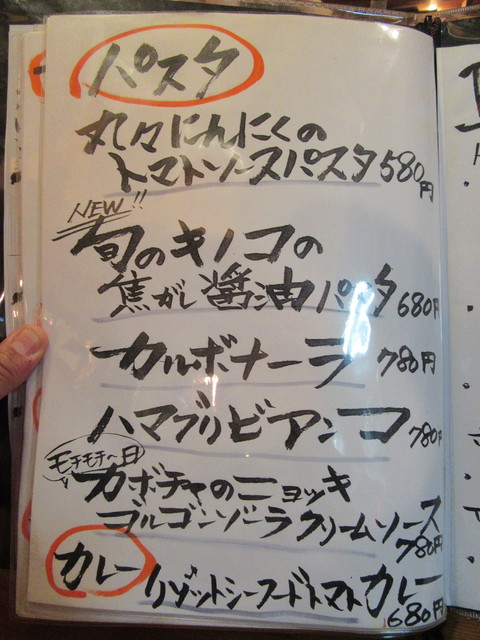 パスタ
丸々にんにくの
トマトソースパスタ 580円
NEW!!
旬のキノコの
焦がし醤油パスタ 680円
カルボナーラ 780円
ハマグリビアンコ 780円
カボチャのニョッキ
ゴルゴンゾーラクリームソース
780円
カレー リゾットシーフードトマトカレー
680円